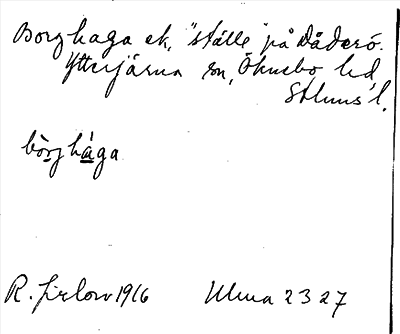 Borghaga ek, "ställe" på Dåderö.
Ytterjärna sn, Öknebo hd
Sthlms l.
bòrjhàga
R. Jirlow 1916 Ulma 2327